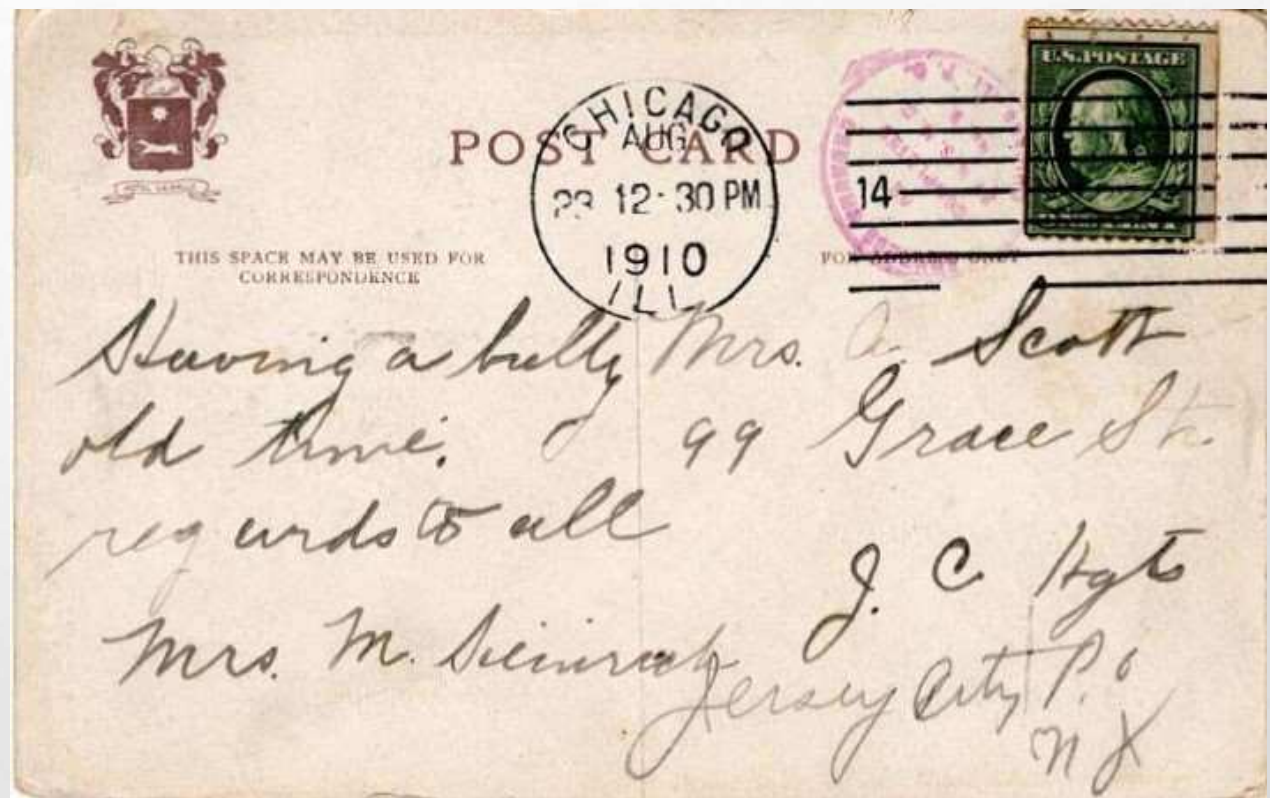 POST CARD
CHICAGO
AUG
23 12-30 PM
1910
ILL
14
U.S. POSTAGE
THIS SPACE MAY BE USED FOR
CORRESPONDENCE
FOR ADDRESS ONLY
Having a bully
old time.
regards to all
Mrs. M.
Mrs. A. Scott
99 Grace St.
J. C. Hgts
Jersey City P.O
N J